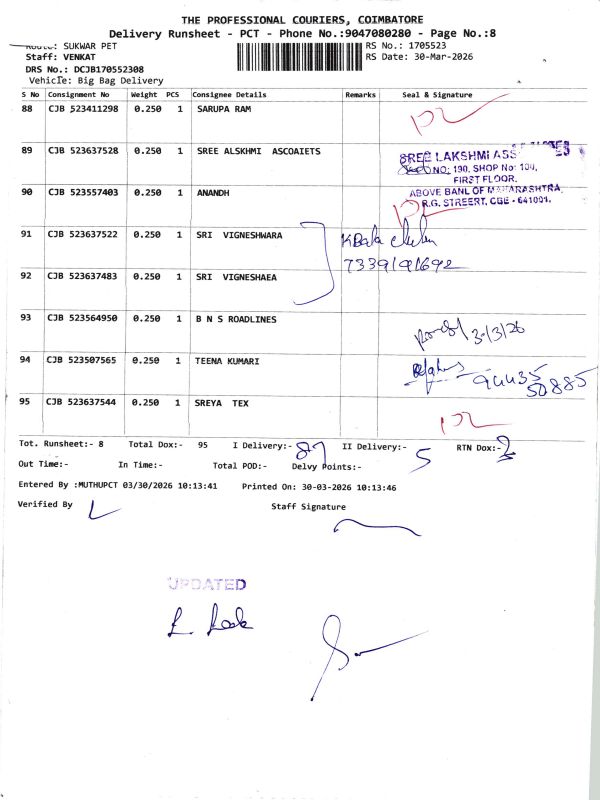 THE PROFESSIONAL COURIERS, COIMBATORE
Delivery Runsheet - PCT - Phone No.:9047080280 - Page No.:8
Route: SUKWAR PET
RS No.: 1705523
Staff: VENKAT
RS Date: 30-Mar-2026
DRS No.: DCJB170552308
Vehicle: Big Bag Delivery
S No Consignment No Weight PCS Consignee Details Remarks Seal & Signature
88 CJB 523411298 0.250 1 SARUPA RAM
89 CJB 523637528 0.250 1 SREE ALSKHMI ASCOAIETS
SREE LAKSHMI ASS
NO: 190, SHOP No: 100,
FIRST FLOOR,
90 CJB 523557403 0.250 1 ANANDH
ABOVE BANL OF MAHARASHTRA,
R.G. STREERT, CBE - 641001.
91 CJB 523637522 0.250 1 SRI VIGNESHWARA
7339191692
92 CJB 523637483 0.250 1 SRI VIGNESHAEA
93 CJB 523564950 0.250 1 B N S ROADLINES
94 CJB 523507565 0.250 1 TEENA KUMARI
94435
50885
95 CJB 523637544 0.250 1 SREYA TEX
Tot. Runsheet:- 8 Total Dox:- 95 I Delivery:- II Delivery:- 5 RTN Dox:- 2
Out Time:- In Time:- Total POD:- Delvy Points:-
Entered By :MUTHUPCT 03/30/2026 10:13:41 Printed On: 30-03-2026 10:13:46
Verified By Staff Signature
UPDATED